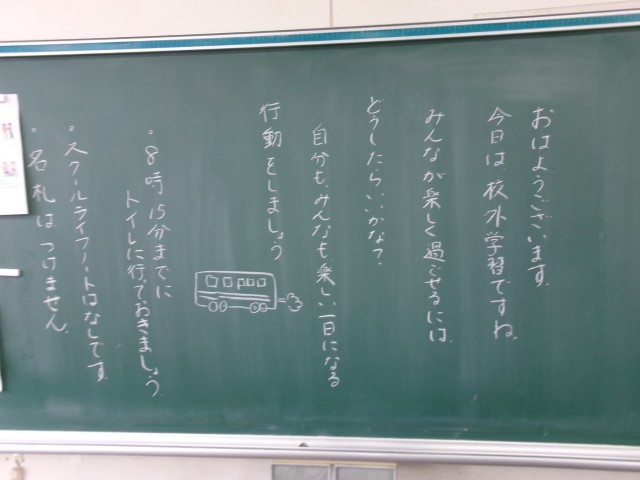 おはようございます。
今日は、校外学習ですね。
みんなが楽しく過ごせるには、
どうしたらいいかな？
自分も、みんなも楽しい一日になる
行動をしましょう
・8時15分までに
トイレに行っておきましょう。
・スクールライフノートはなしです。
・名札は、つけません。